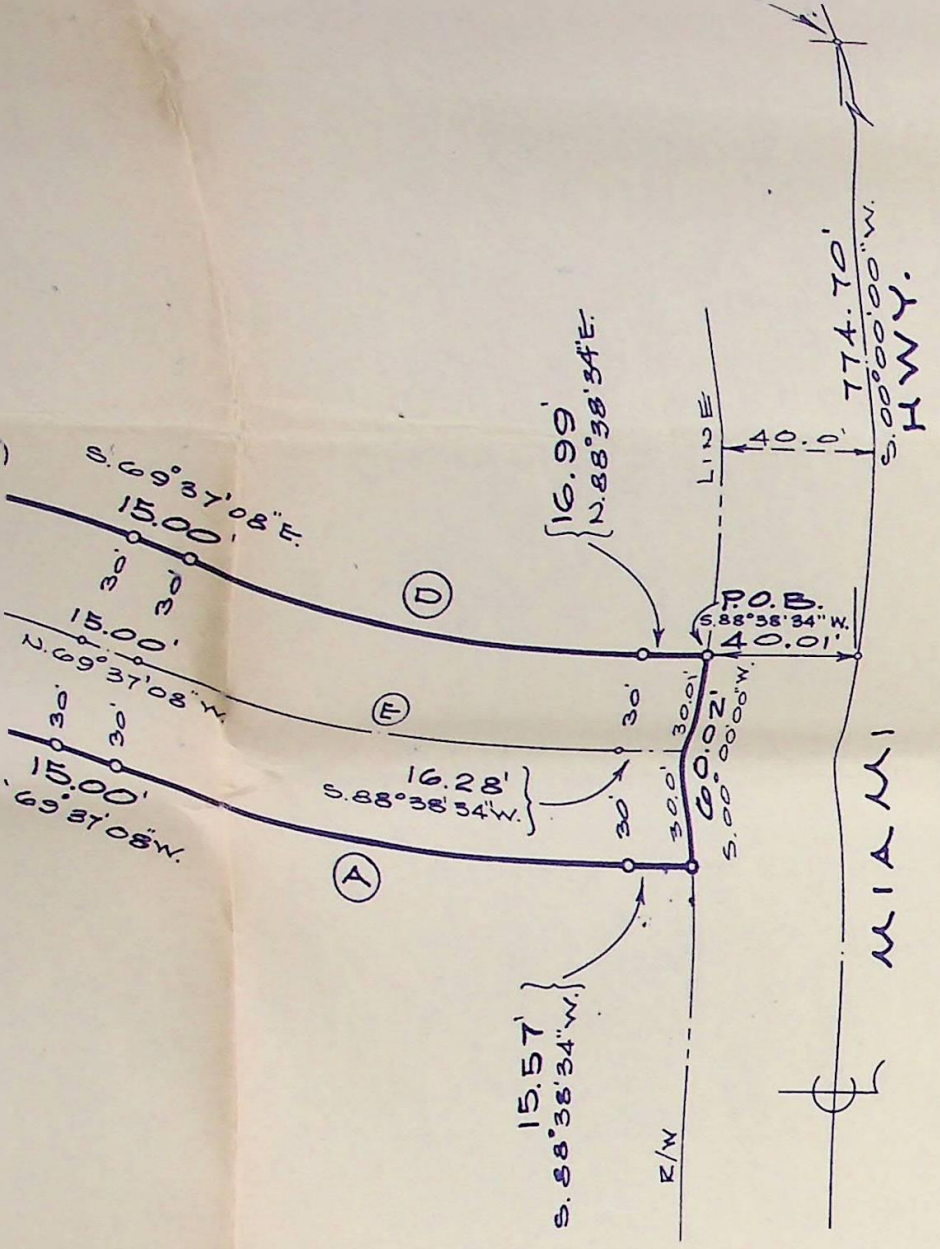 S.69°37'08"E.
15.00'
30'
30'
15.00'
N.69°37'08"W.
30'
30'
15.00'
69°37'08"W.
D
E
A
{16.99'
N.88°38'34"E.
16.28'
S.88°38'34"W.}
15.57'
S.88°38'34"W.}
30'
30'
30.01'
30.01'
60.02'
S.00°00'00"W.
P.O.B.
S.88°38'34"W.
40.01'
LINE
40.0'
774.70'
S.00°00'00"W.
HWY.
MIAMI
R/W